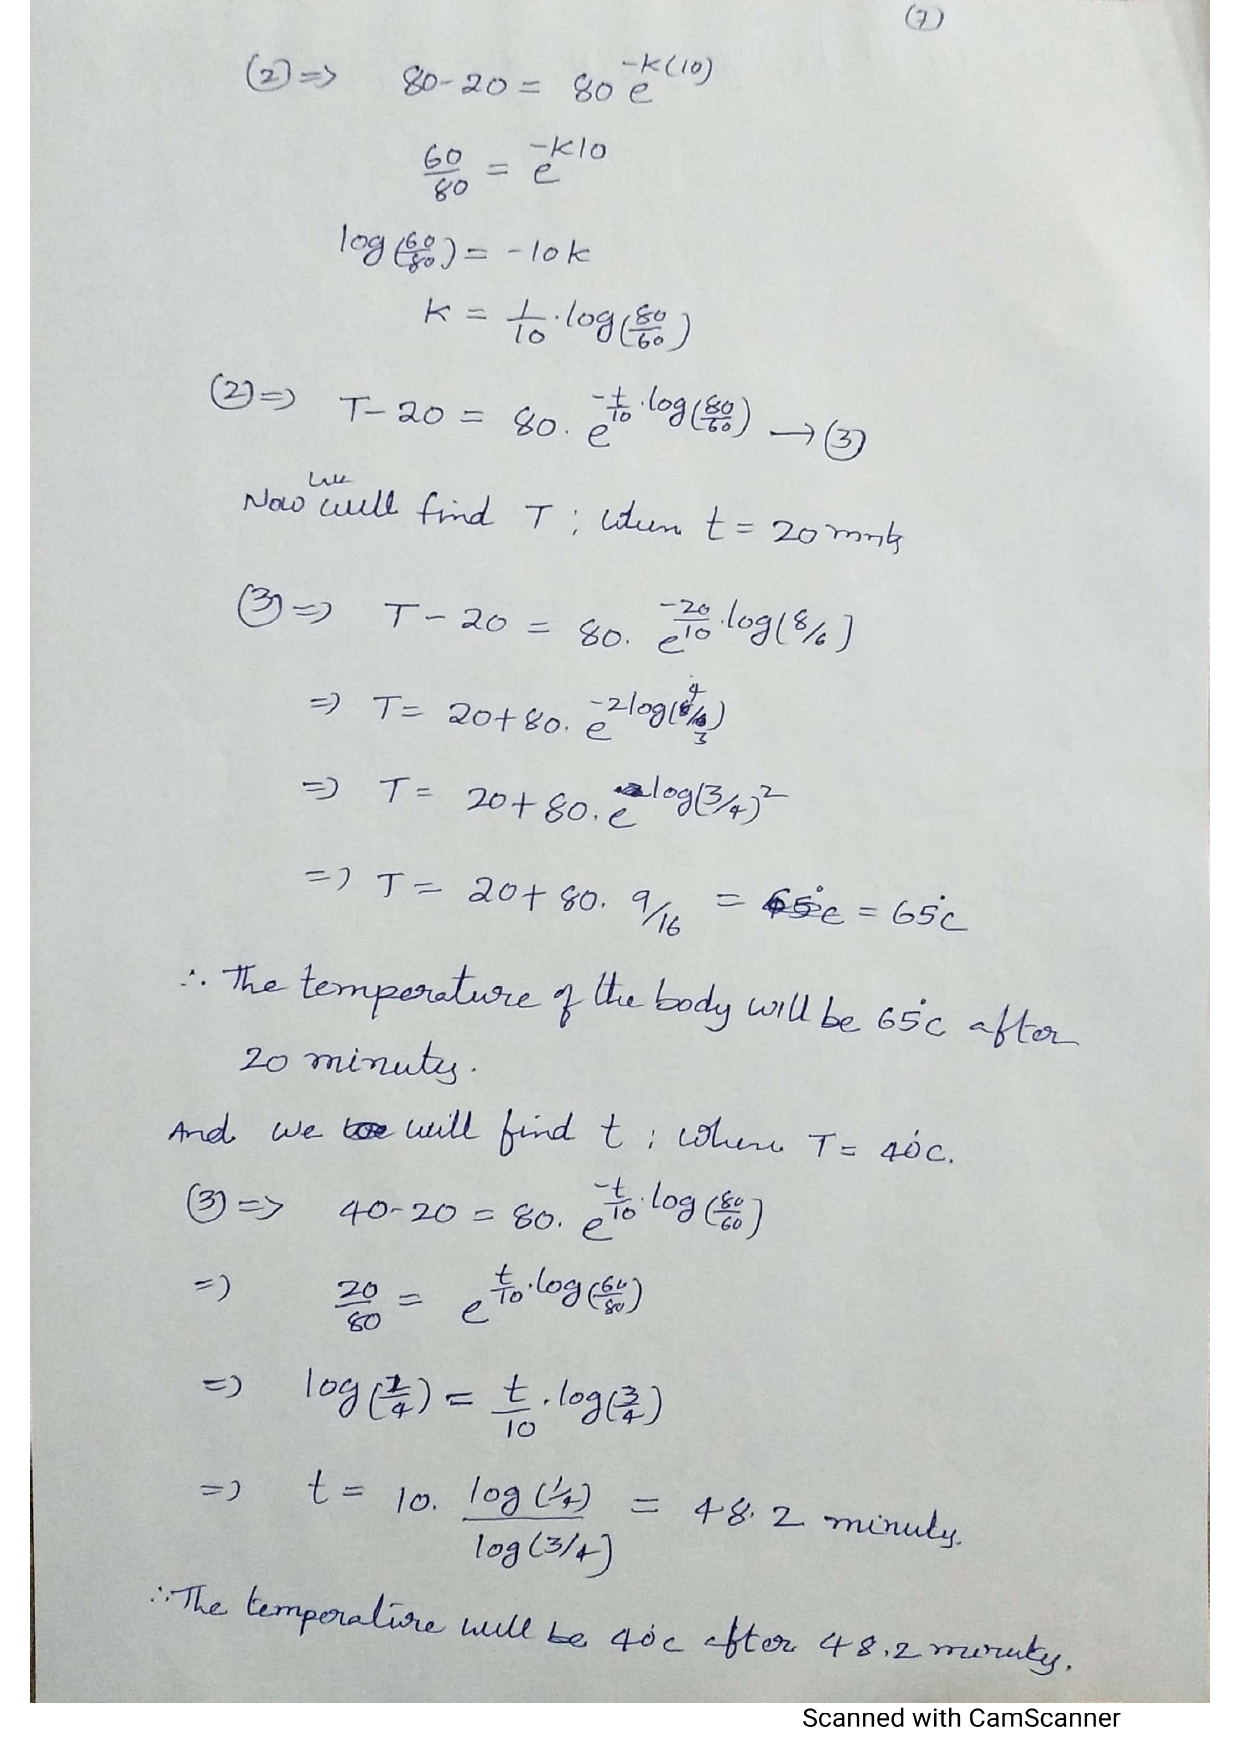 (7)
(2) ⇒ 80-20 = 80 e^{-k(10)}
60/80 = e^{-k10}
log(60/80) = -10k
k = 1/10 · log(80/60)
(2) ⇒ T-20 = 80. e^{-t/10 · log(80/60)} → (3)
Now we will find T ; when t = 20 mnts
(3) ⇒ T - 20 = 80. e^{-20/10 · log(8/6)}
⇒ T = 20+80. e^{-2log(4/3)}
⇒ T = 20+80. e^{log(3/4)^2}
⇒ T = 20+80. 9/16 = 65°c = 65°c
∴ The temperature of the body will be 65°c after
20 minutes.
And we will find t ; when T = 40°c.
(3) ⇒ 40-20 = 80. e^{-t/10 · log(80/60)}
⇒ 20/80 = e^{t/10 · log(60/80)}
⇒ log(1/4) = t/10 · log(3/4)
⇒ t = 10. log(1/4)/log(3/4) = 48.2 minutes.
∴ The temperature will be 40°c after 48.2 minutes.
Scanned with CamScanner